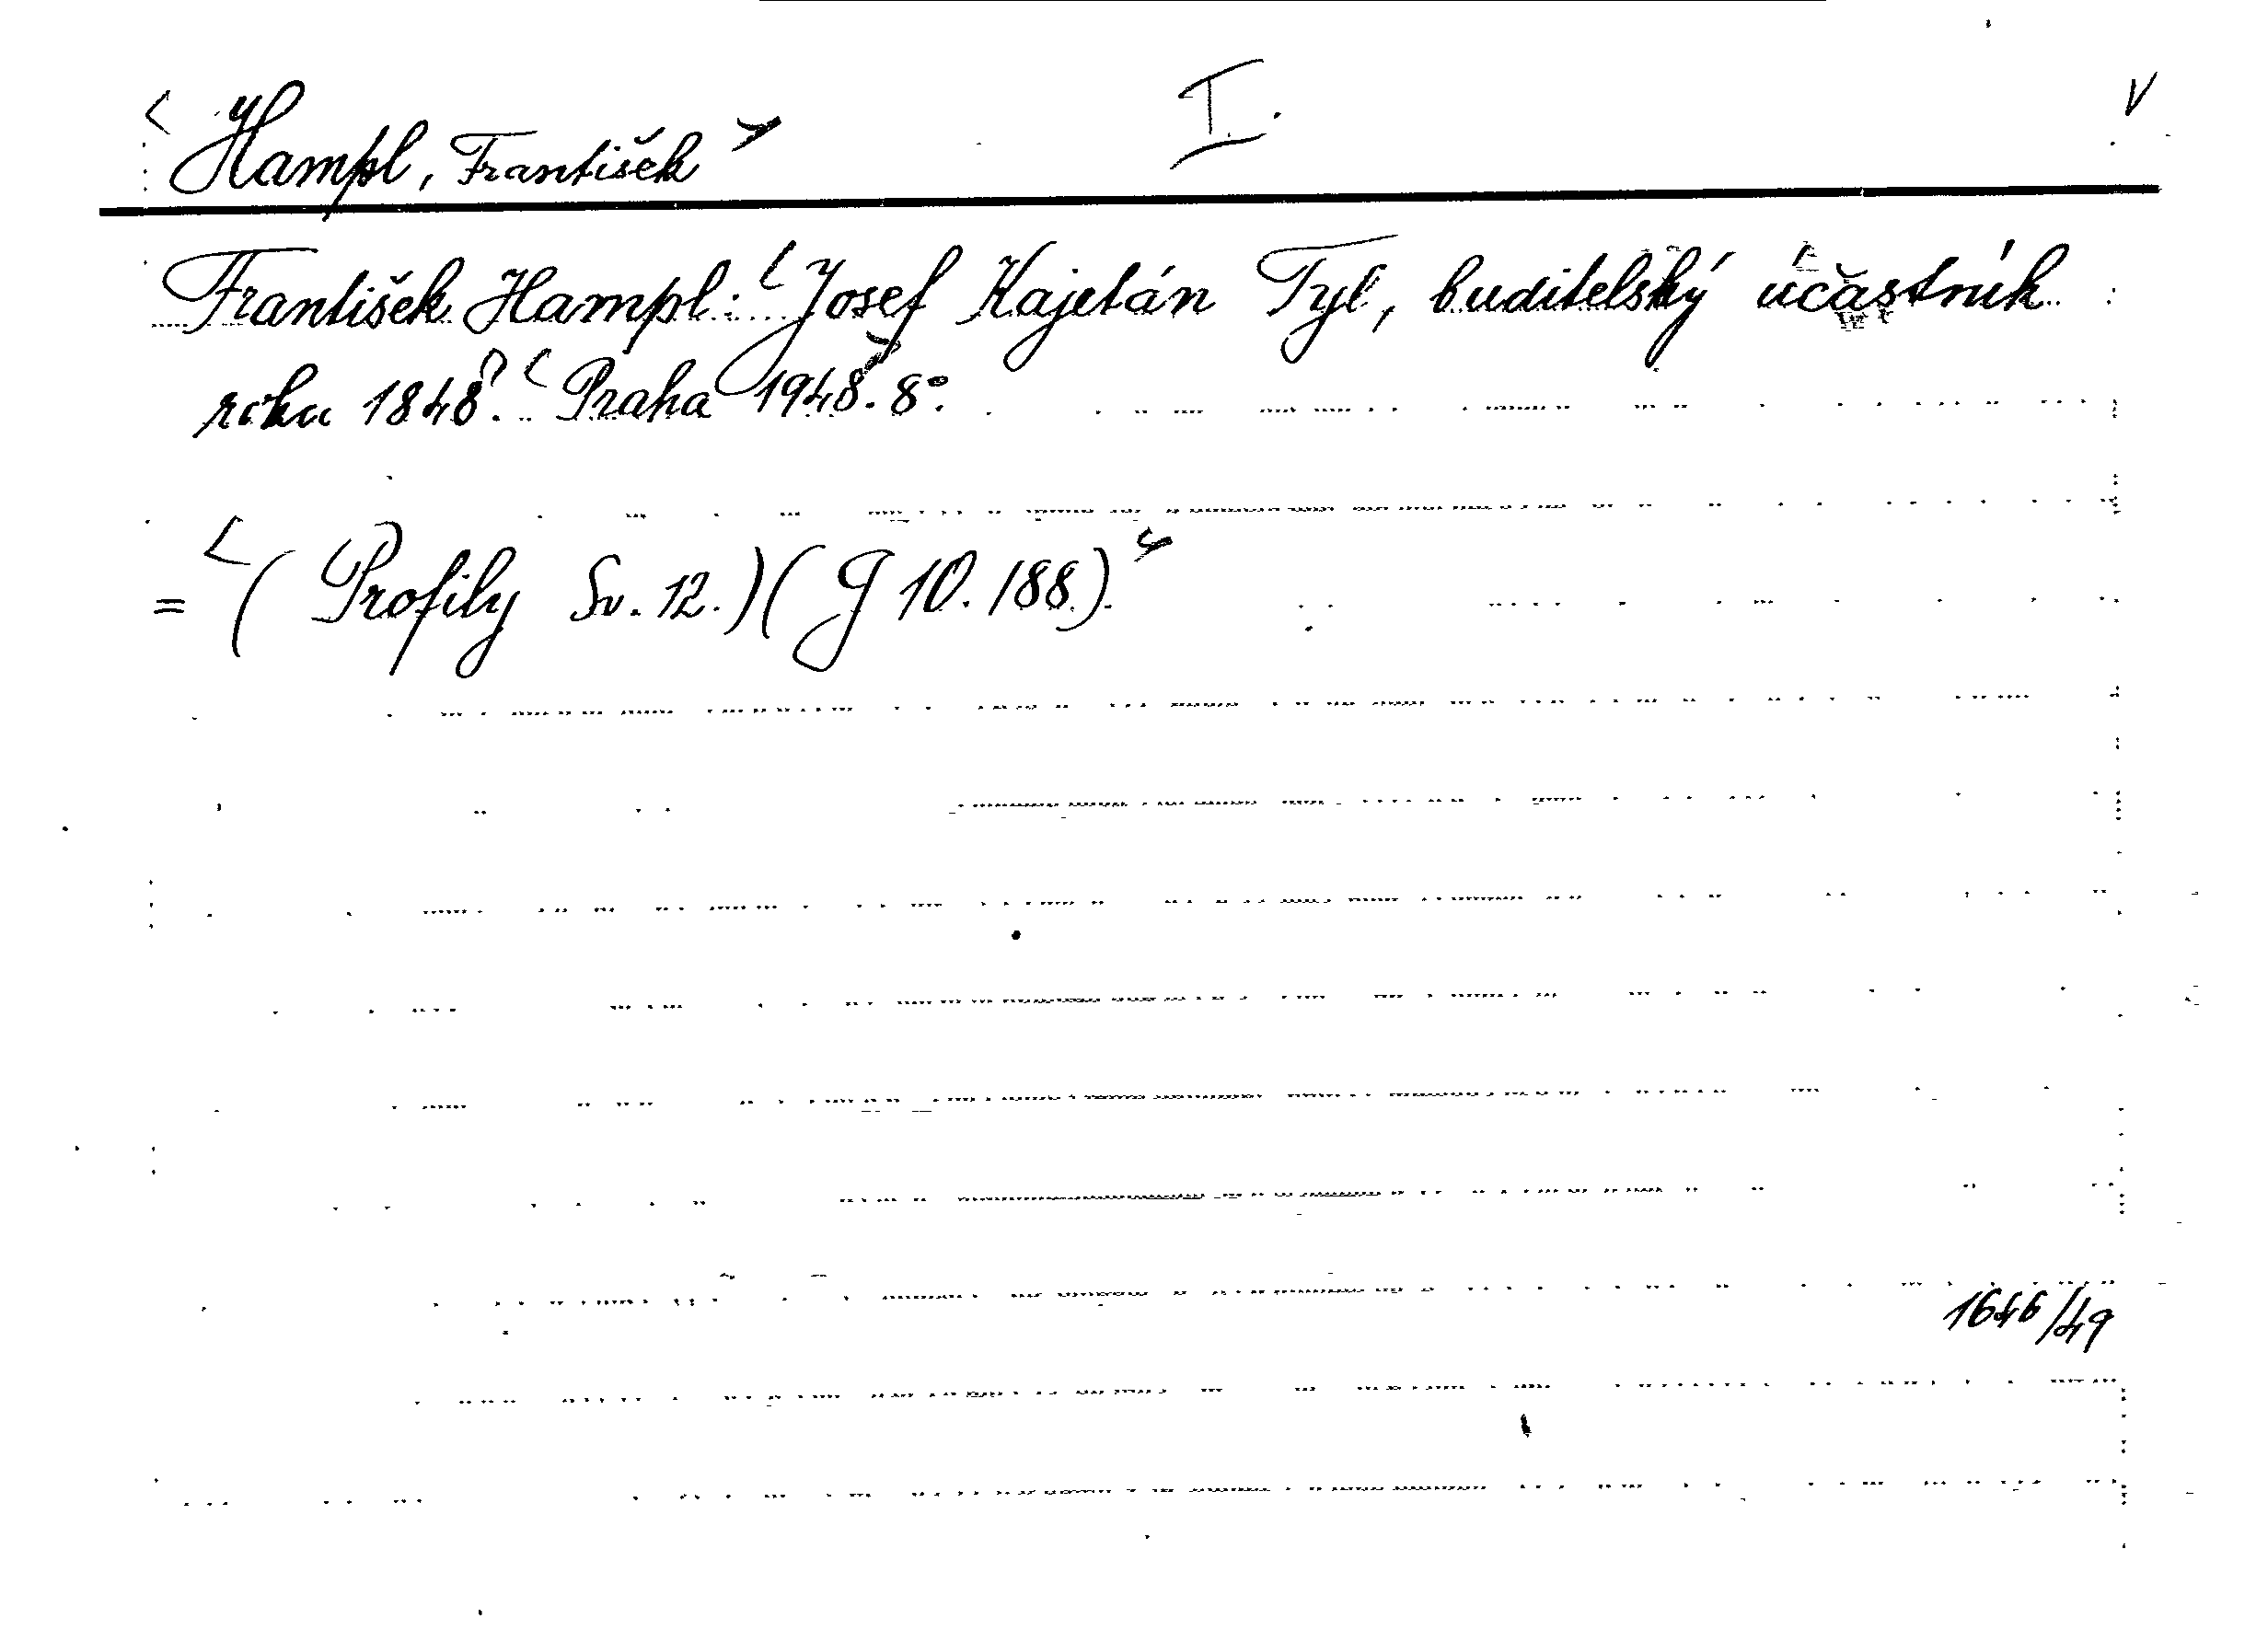 Hampl, František I. V
František Hampl: Josef Kajetán Tyl, buditelský účastník
roku 1848. Praha 1948. 8°.
= (Profily Sv. 12.) (G 10.188.)
1646/49